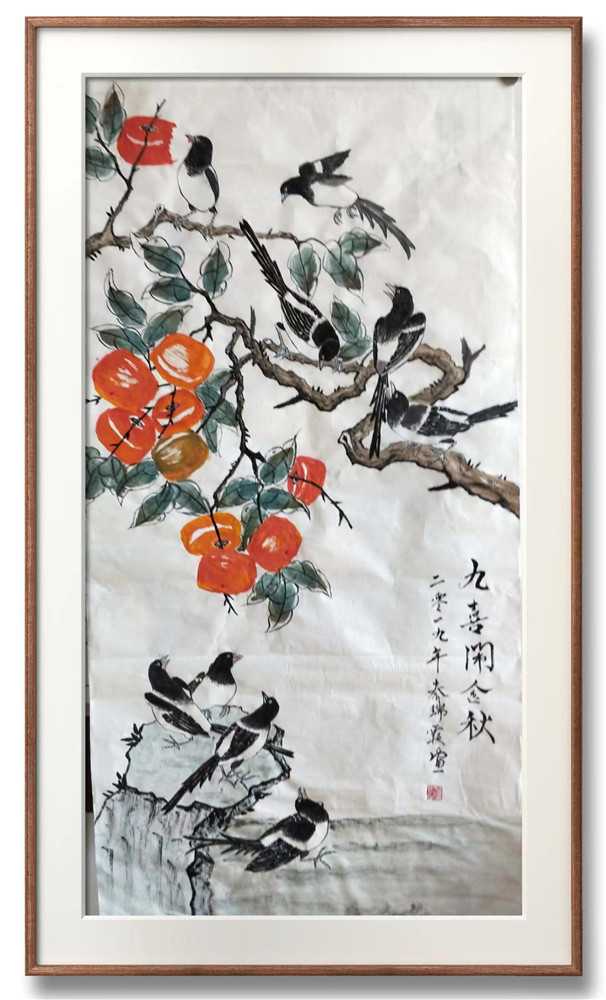 九喜闹金秋
二零一九年 秦瑞霞画